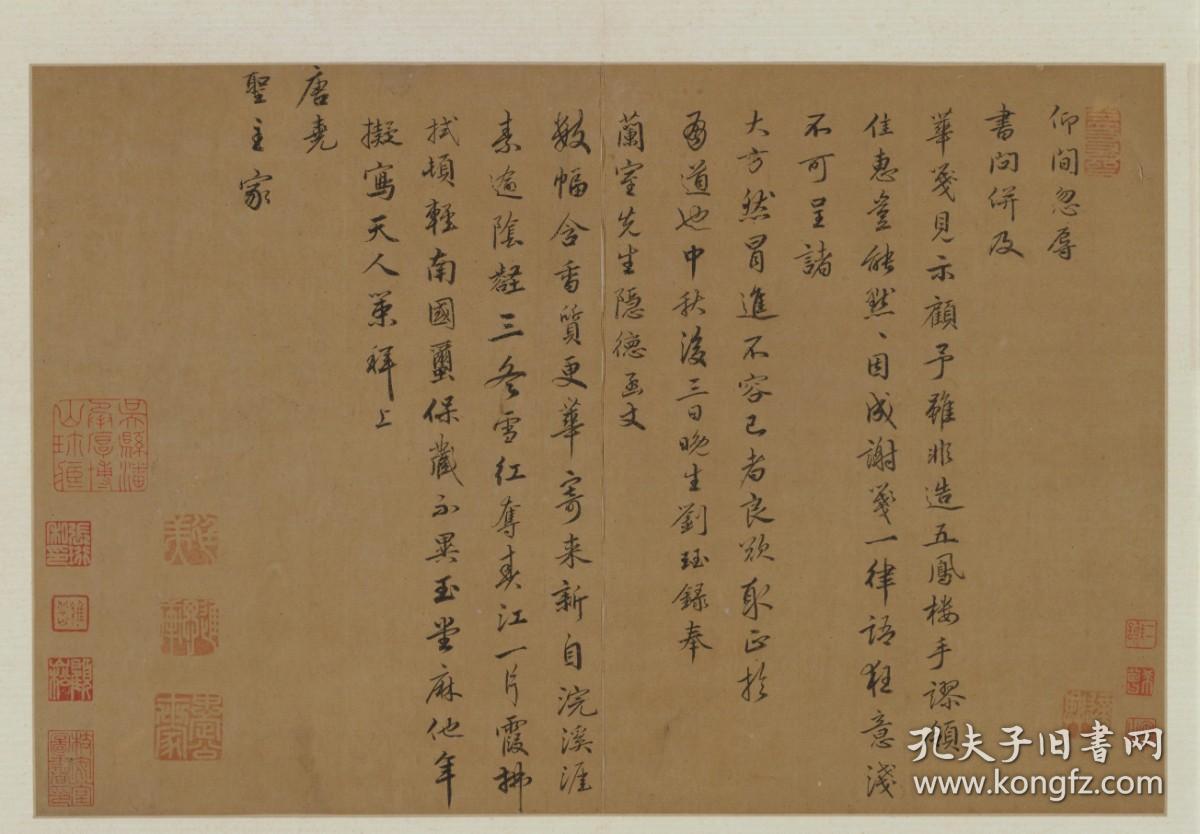 仰間忽辱
書问併及
華箋見示顧予雖非造五鳳楼手謬領
佳惠豈能默、因成謝箋一律語狂意淺
不可呈諸
大方然冒進不容已者良欲取正於
有道也中秋後三日晚生劉珏録奉
蘭室先生隱德丞文
数幅含香質更華寄来新自浣溪涯
素逾陰壑三冬雪红奪春江一片霞拂
拭頓輕南國蠒保藏不異玉堂麻他年
擬寫天人策拜上
唐堯
聖主家
吳縣潘
承厚博
山珍藏
孔夫子旧書网
www.kongfz.com